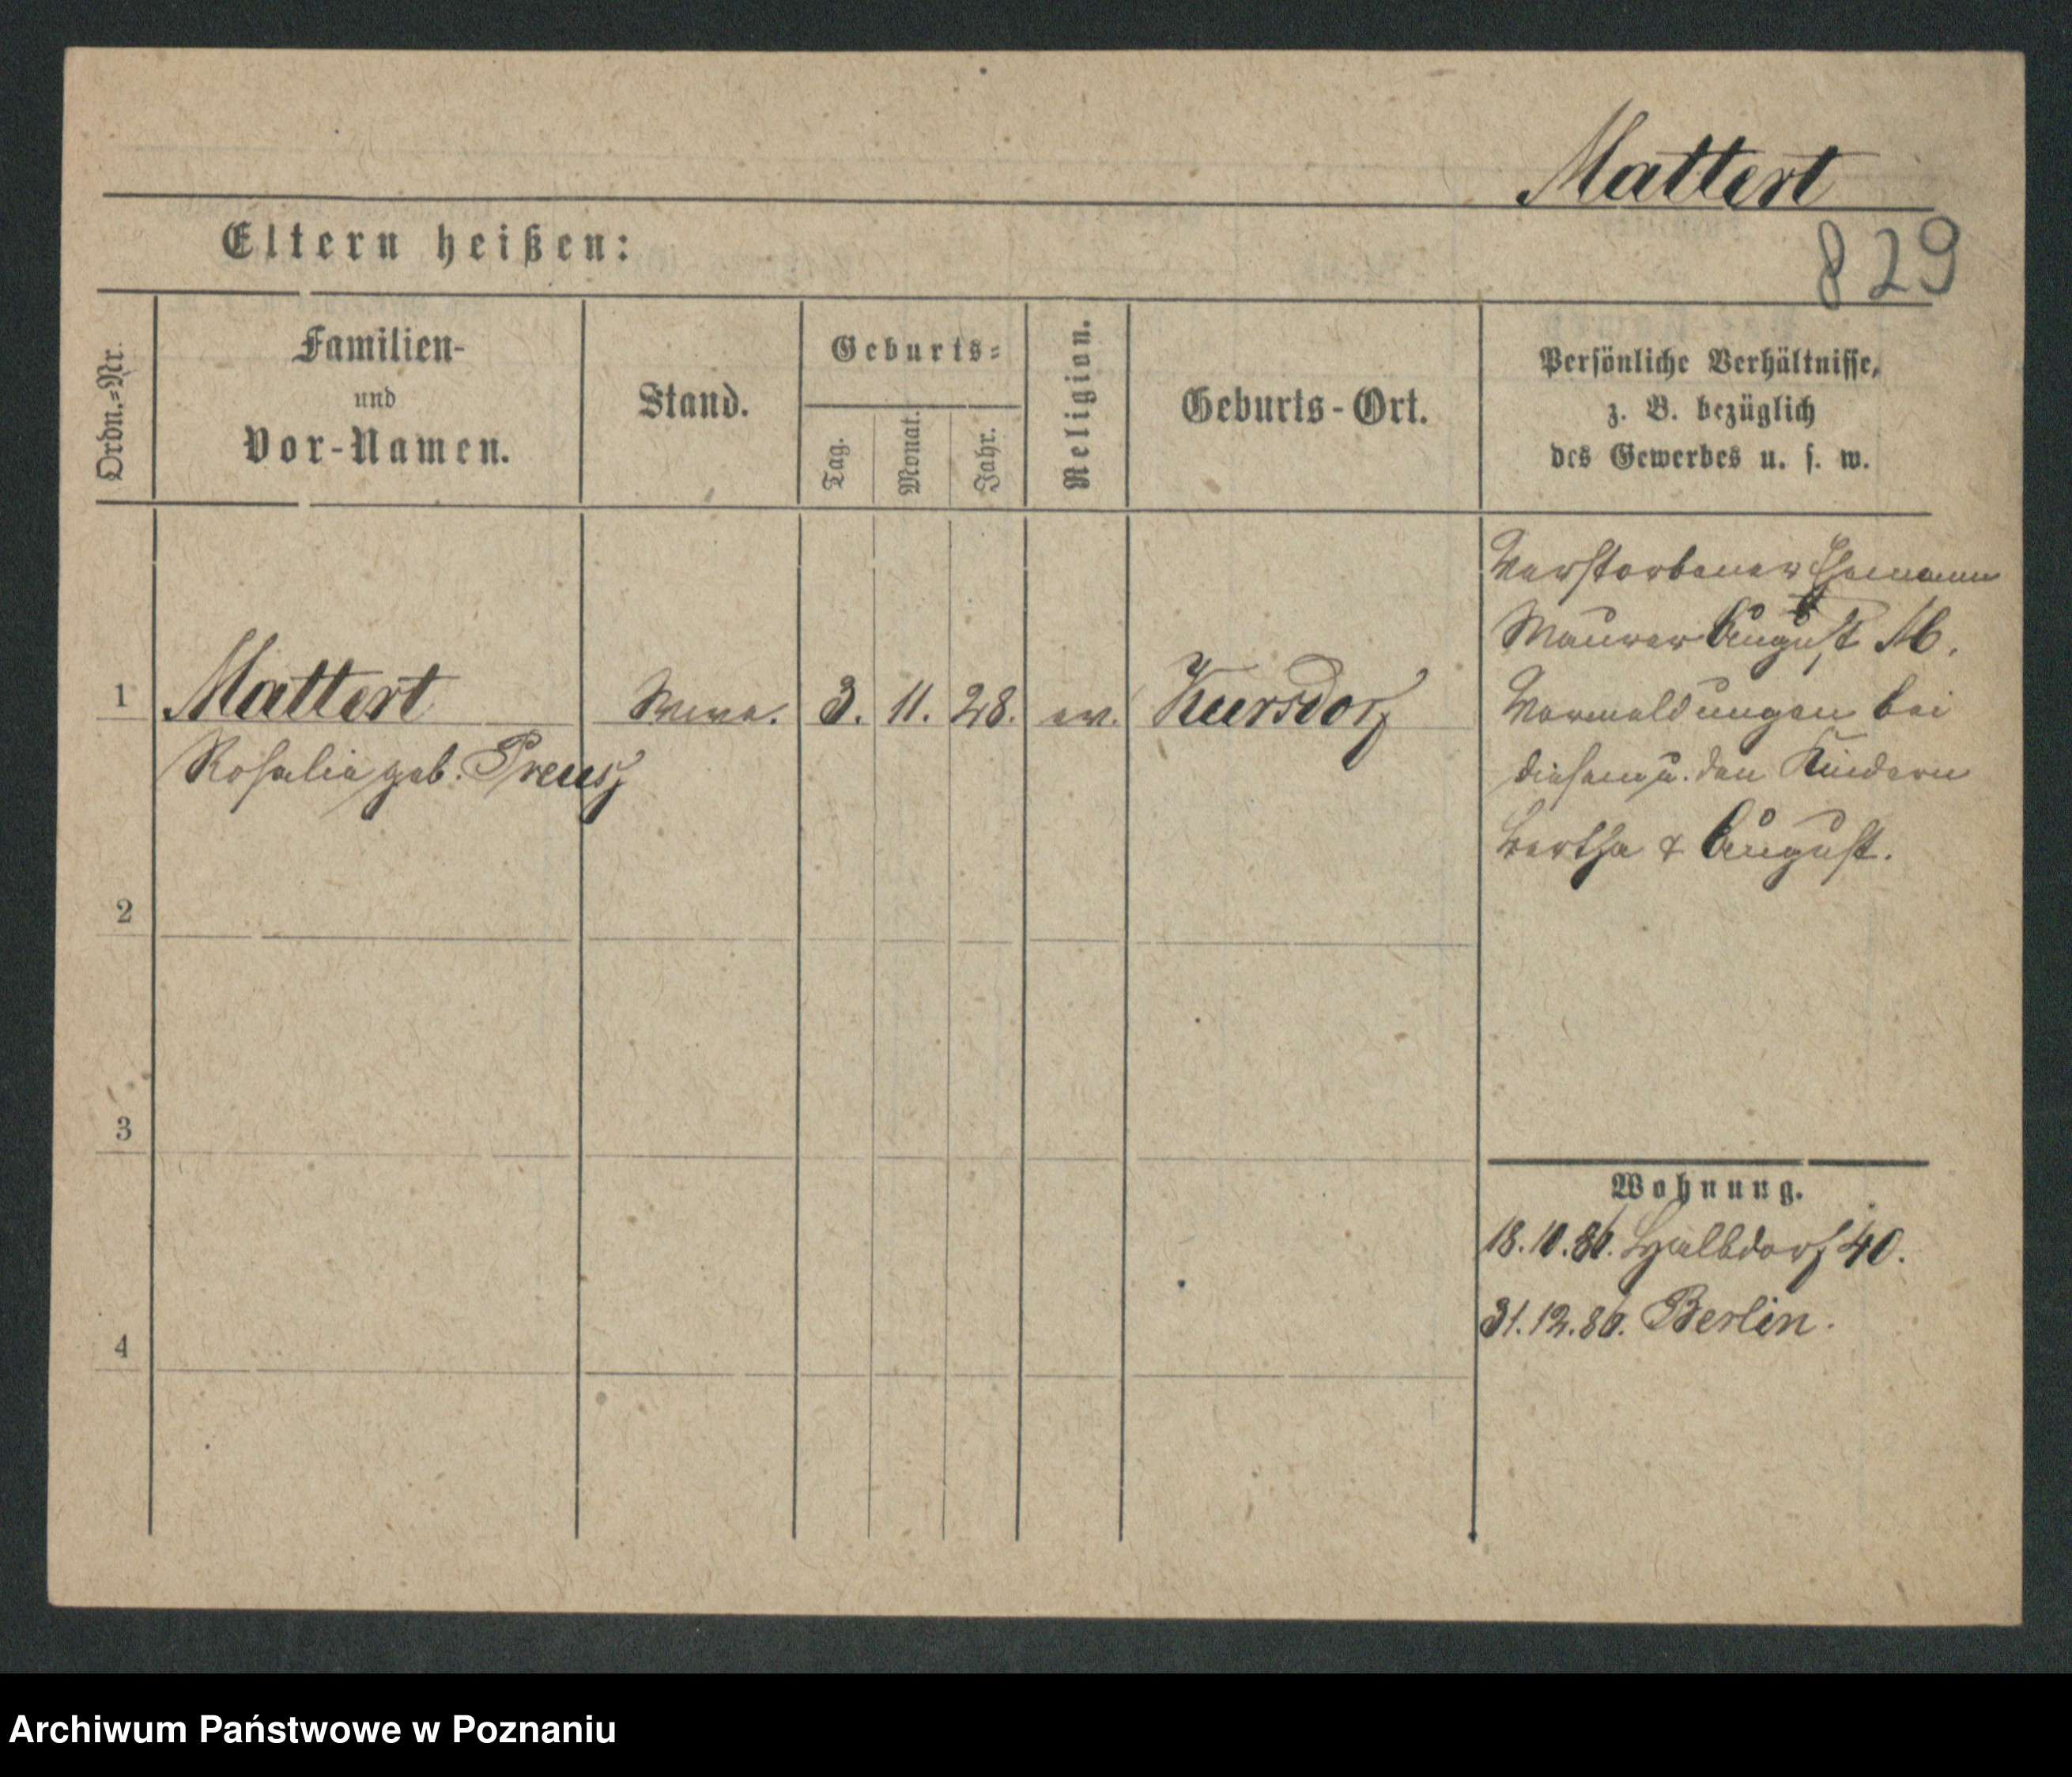 Mattert
829
Eltern heißen:
Ordn.-Nr.
Familien-
und
Vor-Namen.
Stand.
Geburts-
Tag.
Monat.
Jahr.
Religion.
Geburts-Ort.
Persönliche Verhältnisse,
z. B. bezüglich
des Gewerbes u. s. w.
1
Mattert
Wwe.
3.
11.
28.
ev.
Kursdorf
Rosalie geb. Preusz
Verstorbener Ehemann
Maurer August M.
Vormeldungen bei
diesem u. den Kindern
Bertha & August.
2
3
4
Wohnung.
18.10.86. Halbdorf 40.
31.12.86. Berlin.
Archiwum Państwowe w Poznaniu